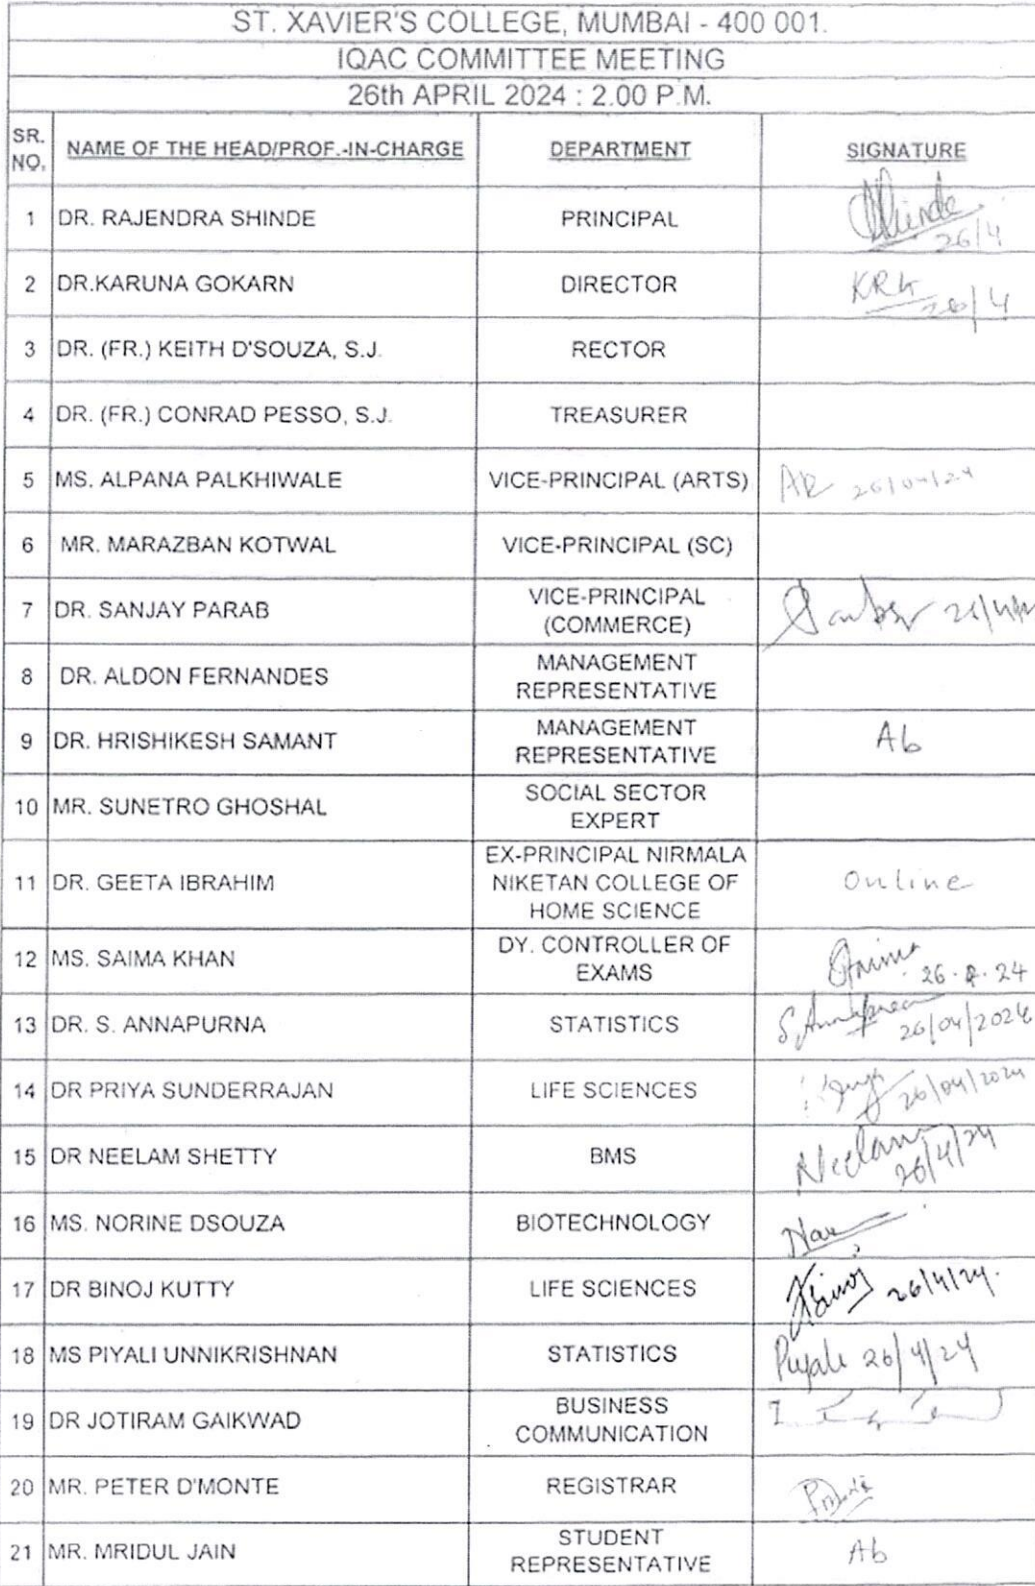 ST. XAVIER'S COLLEGE, MUMBAI - 400 001.
IQAC COMMITTEE MEETING
26th APRIL 2024 : 2.00 P.M.
SR. NO. NAME OF THE HEAD/PROF.-IN-CHARGE DEPARTMENT SIGNATURE
1 DR. RAJENDRA SHINDE PRINCIPAL Shinde 26/4
2 DR.KARUNA GOKARN DIRECTOR KRG 26/4
3 DR. (FR.) KEITH D'SOUZA, S.J. RECTOR
4 DR. (FR.) CONRAD PESSO, S.J. TREASURER
5 MS. ALPANA PALKHIWALE VICE-PRINCIPAL (ARTS) 26/04/24
6 MR. MARAZBAN KOTWAL VICE-PRINCIPAL (SC)
7 DR. SANJAY PARAB VICE-PRINCIPAL
(COMMERCE)
8 DR. ALDON FERNANDES MANAGEMENT
REPRESENTATIVE
9 DR. HRISHIKESH SAMANT MANAGEMENT
REPRESENTATIVE Ab
10 MR. SUNETRO GHOSHAL SOCIAL SECTOR
EXPERT
11 DR. GEETA IBRAHIM EX-PRINCIPAL NIRMALA
NIKETAN COLLEGE OF
HOME SCIENCE Online
12 MS. SAIMA KHAN DY. CONTROLLER OF
EXAMS Saima
13 DR. S. ANNAPURNA STATISTICS S. Annapurna 26/04/2024
14 DR PRIYA SUNDERRAJAN LIFE SCIENCES 26/04/2024
15 DR NEELAM SHETTY BMS Neelam 26/4/24
16 MS. NORINE DSOUZA BIOTECHNOLOGY
17 DR BINOJ KUTTY LIFE SCIENCES Binoj 26/4/24.
18 MS PIYALI UNNIKRISHNAN STATISTICS Piyali 26/4/24
19 DR JOTIRAM GAIKWAD BUSINESS
COMMUNICATION
20 MR. PETER D'MONTE REGISTRAR
21 MR. MRIDUL JAIN STUDENT
REPRESENTATIVE Ab